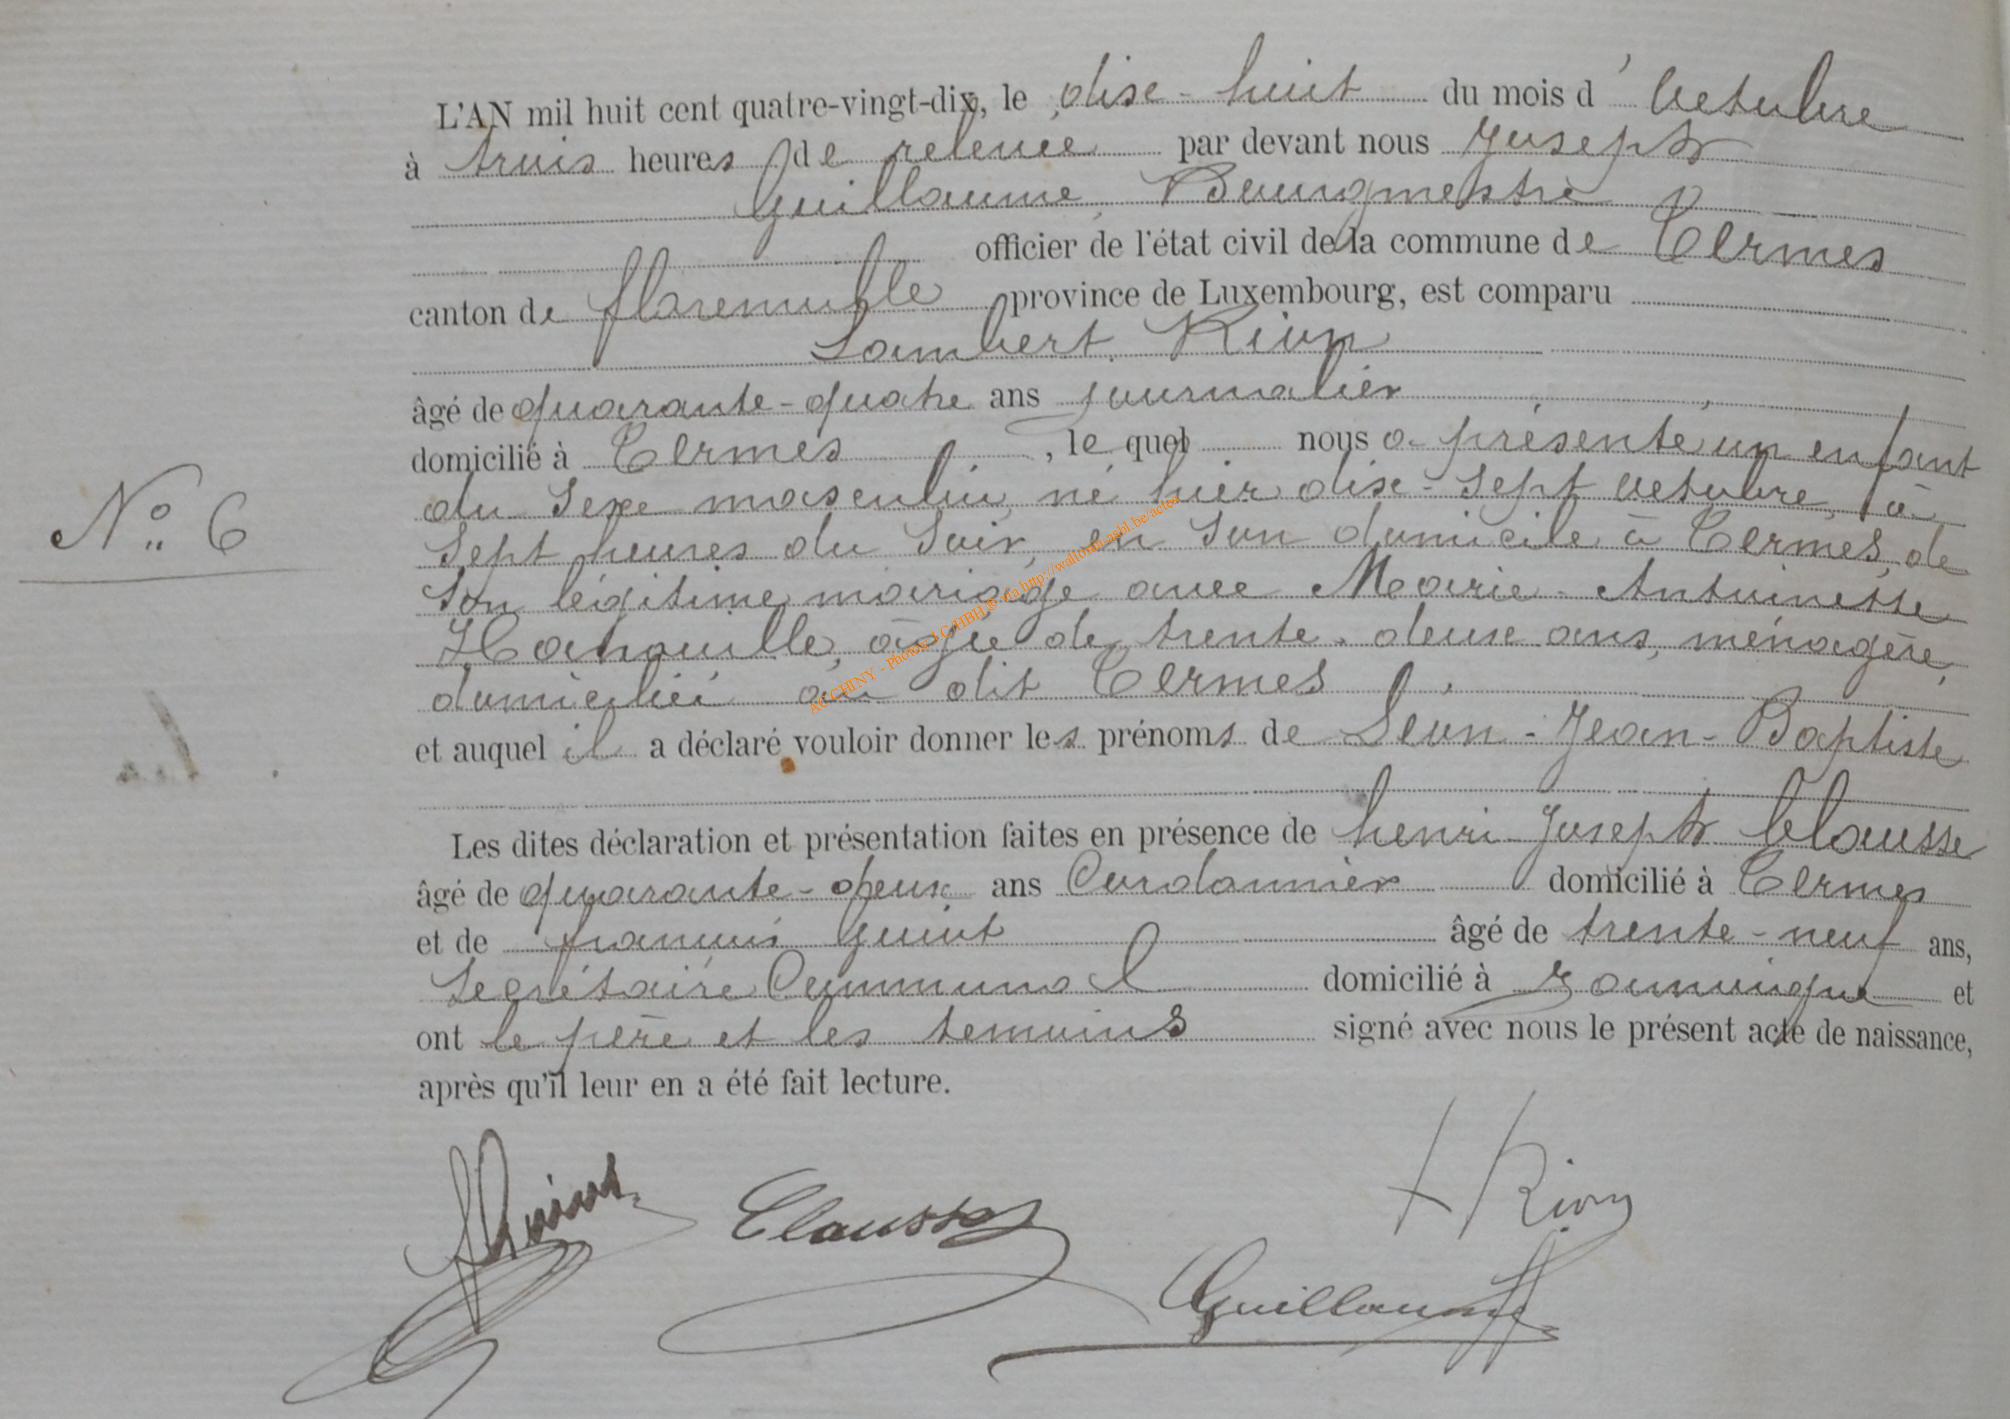 L'AN mil huit cent quatre-vingt-dix, le dix-huit du mois d'Octobre
à trois heures de relevée par devant nous Joseph
Guillaume, Bourgmestre
officier de l'état civil de la commune de Termes
canton de florenville province de Luxembourg, est comparu
Lambert Rion
âgé de quarante-quatre ans journalier
domicilié à Termes, le quel nous a présenté un enfant
du sexe masculin, né hier dix-sept octobre, à
sept heures du soir, en son domicile à Termes, de
son légitime mariage avec Marie-Antoinette
Hanouille, âgée de trente-deux ans, ménagère,
domiciliée au dit Termes
et auquel il a déclaré vouloir donner les prénoms de Léon-Jean-Baptiste
Les dites déclaration et présentation faites en présence de henri-Joseph Clausse
âgé de quarante-deux ans Cordonnier domicilié à Termes
et de françois Guiot âgé de trente-neuf ans,
Secrétaire Communal domicilié à Jamoigne et
ont le père et les témoins signé avec nous le présent acte de naissance,
après qu'il leur en a été fait lecture.
N° 6
Guiot
Clausse
Rion
Guillaume
AC CHINY - Photos LC-HBH © via http://wallonia-asbl.be/actes/